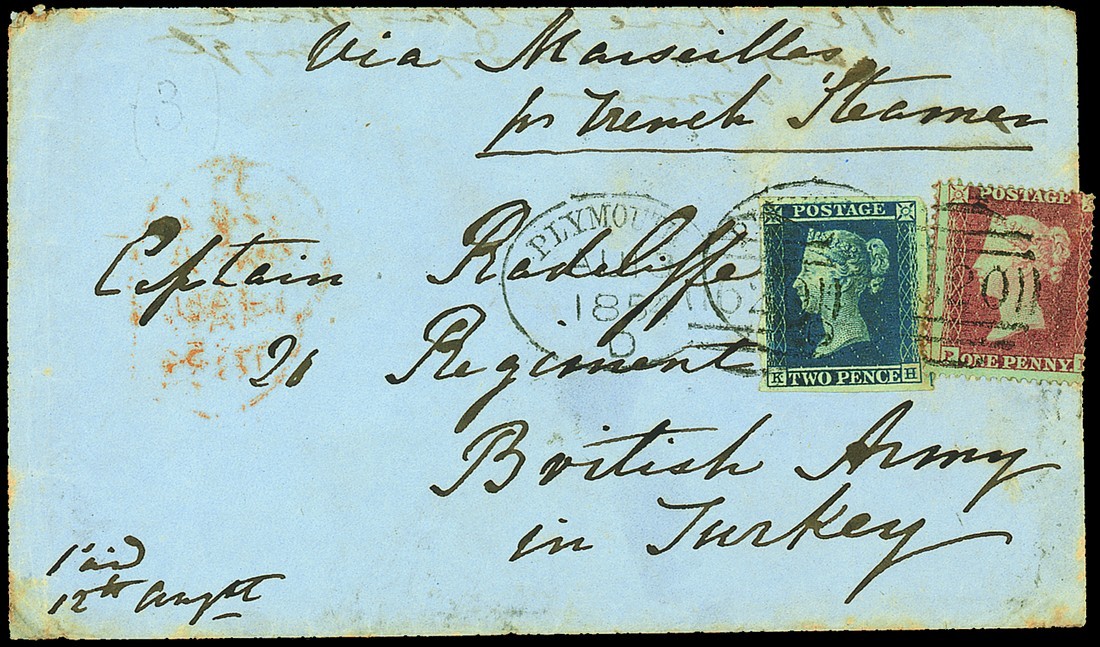 Via Marseilles
pr French Steamer
PLYMOUTH
185
D
POSTAGE
K TWO PENCE H
POSTAGE
P ONE PENNY
620
Captain Radcliffe
20 Regiment
British Army
in Turkey
Paid
12th Augst